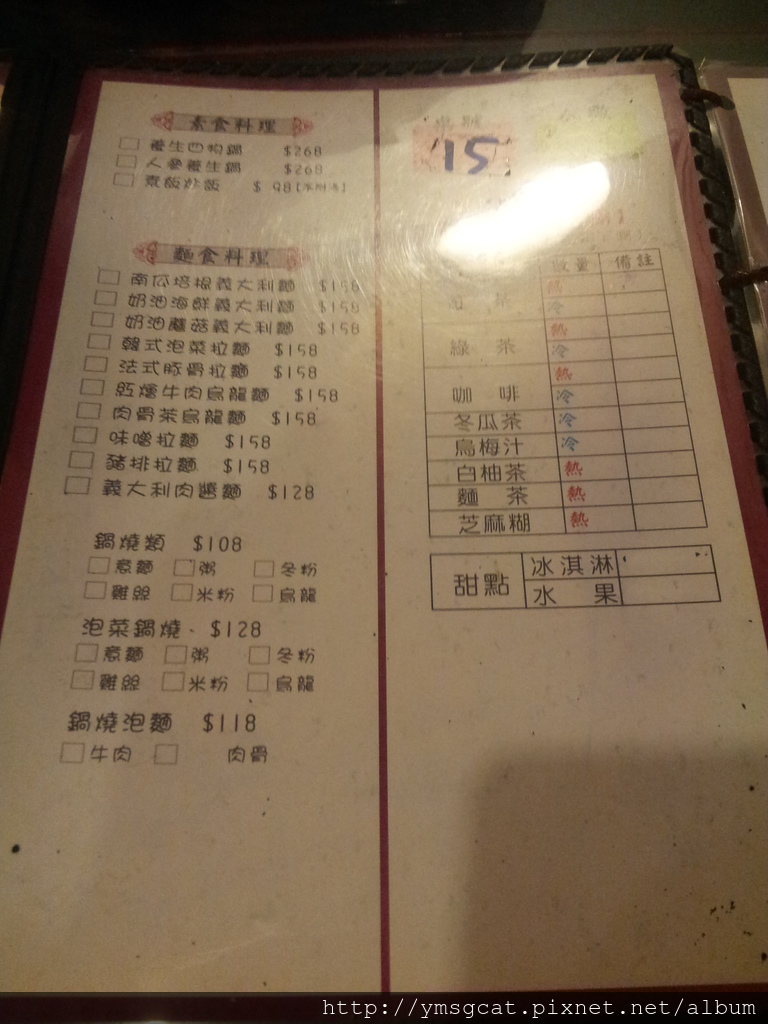 素食料理
養生四物鍋 $268
人參養生鍋 $268
素飯炒飯 $ 98
麵食料理
南瓜培根義大利麵 $158
奶油海鮮義大利麵 $158
奶油蘑菇義大利麵 $158
韓式泡菜拉麵 $158
法式豚骨拉麵 $158
紅燒牛肉烏龍麵 $158
肉骨茶烏龍麵 $158
味噌拉麵 $158
豬排拉麵 $158
義大利肉醬麵 $128
鍋燒類 $108
意麵 粥 冬粉
雞絲 米粉 烏龍
泡菜鍋燒 $128
意麵 粥 冬粉
雞絲 米粉 烏龍
鍋燒泡麵 $118
牛肉 肉骨
桌號
15
數量 備註
紅 茶 熱
冷
綠 茶 熱
冷
咖 啡 熱
冷
冬瓜茶 冷
烏梅汁 冷
白柚茶 熱
麵 茶 熱
芝麻糊 熱
甜點 冰淇淋
水 果
http://ymsgcat.pixnet.net/album